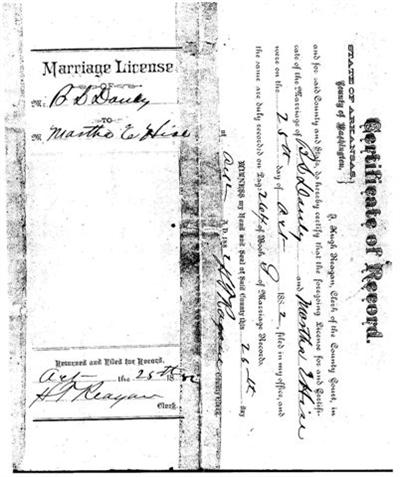 Marriage License
OF
Mr. B S Dauly
TO
M Martha E Hise
Returned and Filed for Record,
Oct the 25th 1882
H F Reagan
Clerk.
Certificate of Record.
STATE OF ARKANSAS,
County of Washington.
I, Hugh Reagan, Clerk of the County Court, in
and for said County and State, do hereby certify that the foregoing License for and Certifi-
cate of the Marriage of B S Dauly and Martha E Hise
were on the 25th day of Oct 1882, filed in my office, and
the same are duly recorded on Page 264 of Book of Marriage Records.
WITNESS my Hand and Seal of Said County this 25th day
of Oct A.D. 188 H F Reagan County Clerk